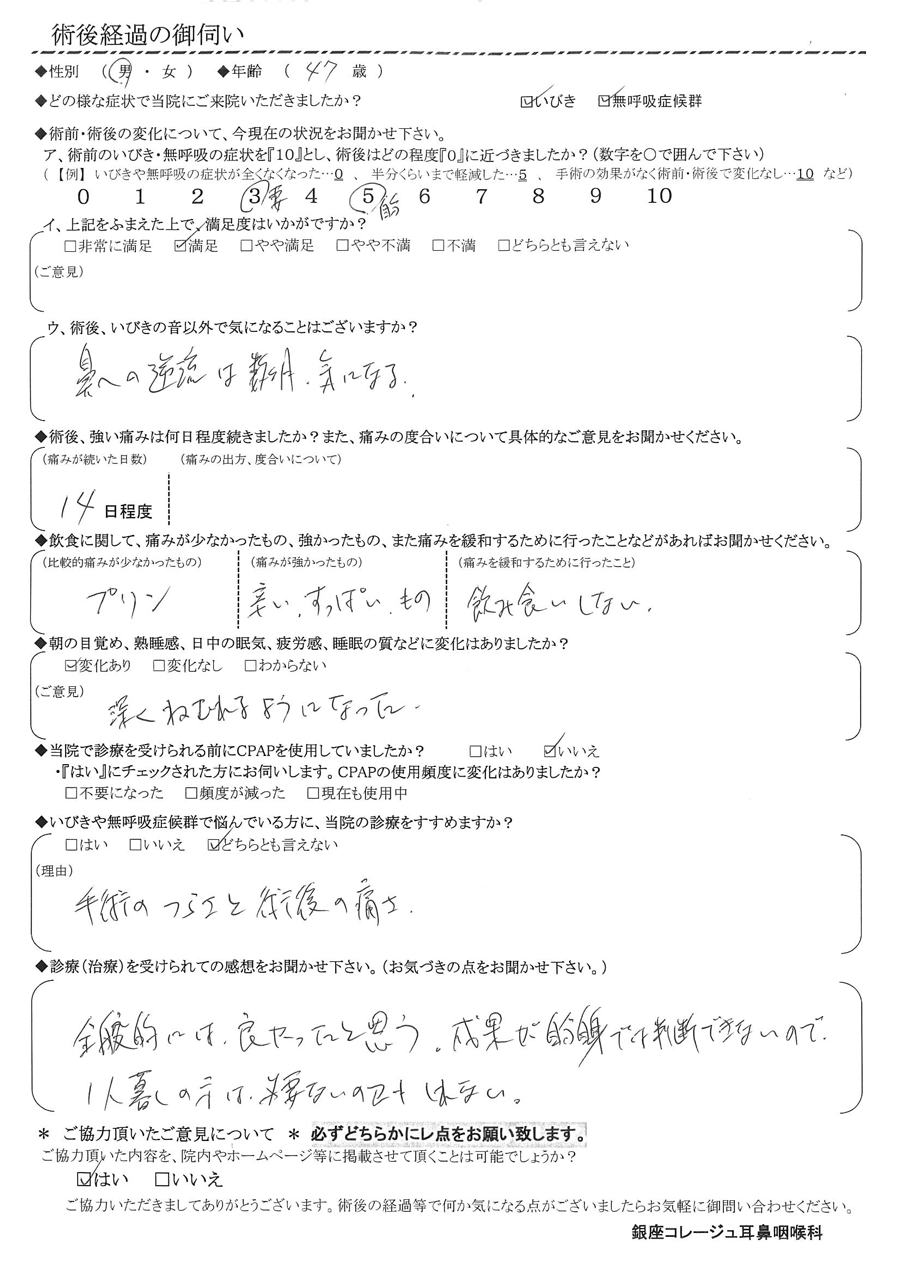 術後経過の御伺い
◆性別 （ 男 ・ 女 ） ◆年齢 （ 47 歳 ）
◆どの様な症状で当院にご来院いただきましたか？ ☑いびき ☑無呼吸症候群
◆術前・術後の変化について、今現在の状況をお聞かせ下さい。
ア、術前のいびき・無呼吸の症状を『10』とし、術後はどの程度『0』に近づきましたか？（数字を○で囲んで下さい）
（【例】いびきや無呼吸の症状が全くなくなった…0 、 半分くらいまで軽減した…5 、 手術の効果がなく術前・術後で変化なし…10 など）
0 1 2 3 妻 4 5 6 7 8 9 10
イ、上記をふまえた上で、満足度はいかがですか？
□非常に満足 ☑満足 □やや満足 □やや不満 □不満 □どちらとも言えない
（ご意見）
ウ、術後、いびきの音以外で気になることはございますか？
鼻への逆流は数ヶ月、気になる。
◆術後、強い痛みは何日程度続きましたか？また、痛みの度合いについて具体的なご意見をお聞かせください。
（痛みが続いた日数） （痛みの出方、度合いについて）
14 日程度
◆飲食に関して、痛みが少なかったもの、強かったもの、また痛みを緩和するために行ったことなどがあればお聞かせください。
（比較的痛みが少なかったもの） （痛みが強かったもの） （痛みを緩和するために行ったこと）
プリン 辛い、すっぱい、もの 飲み食いしない。
◆朝の目覚め、熟睡感、日中の眠気、疲労感、睡眠の質などに変化はありましたか？
☑変化あり □変化なし □わからない
（ご意見）
深くねむれるようになった。
◆当院で診療を受けられる前にCPAPを使用していましたか？ □はい ☑いいえ
・『はい』にチェックされた方にお伺いします。CPAPの使用頻度に変化はありましたか？
□不要になった □頻度が減った □現在も使用中
◆いびきや無呼吸症候群で悩んでいる方に、当院の診療をすすめますか？
□はい □いいえ ☑どちらとも言えない
（理由）
手術のつらさと術後の痛さ。
◆診療（治療）を受けられての感想をお聞かせ下さい。（お気づきの点をお聞かせ下さい。）
全般的には、良かったと思う。成果が自分自身では判断できないので、
1人暮しの方は、必要ないのかもしれない。
＊ ご協力頂いたご意見について ＊ 必ずどちらかにレ点をお願い致します。
ご協力頂いた内容を、院内やホームページ等に掲載させて頂くことは可能でしょうか？
☑はい □いいえ
ご協力いただきましてありがとうございます。術後の経過等で何か気になる点がございましたらお気軽に御問い合わせください。
銀座コレージュ耳鼻咽喉科